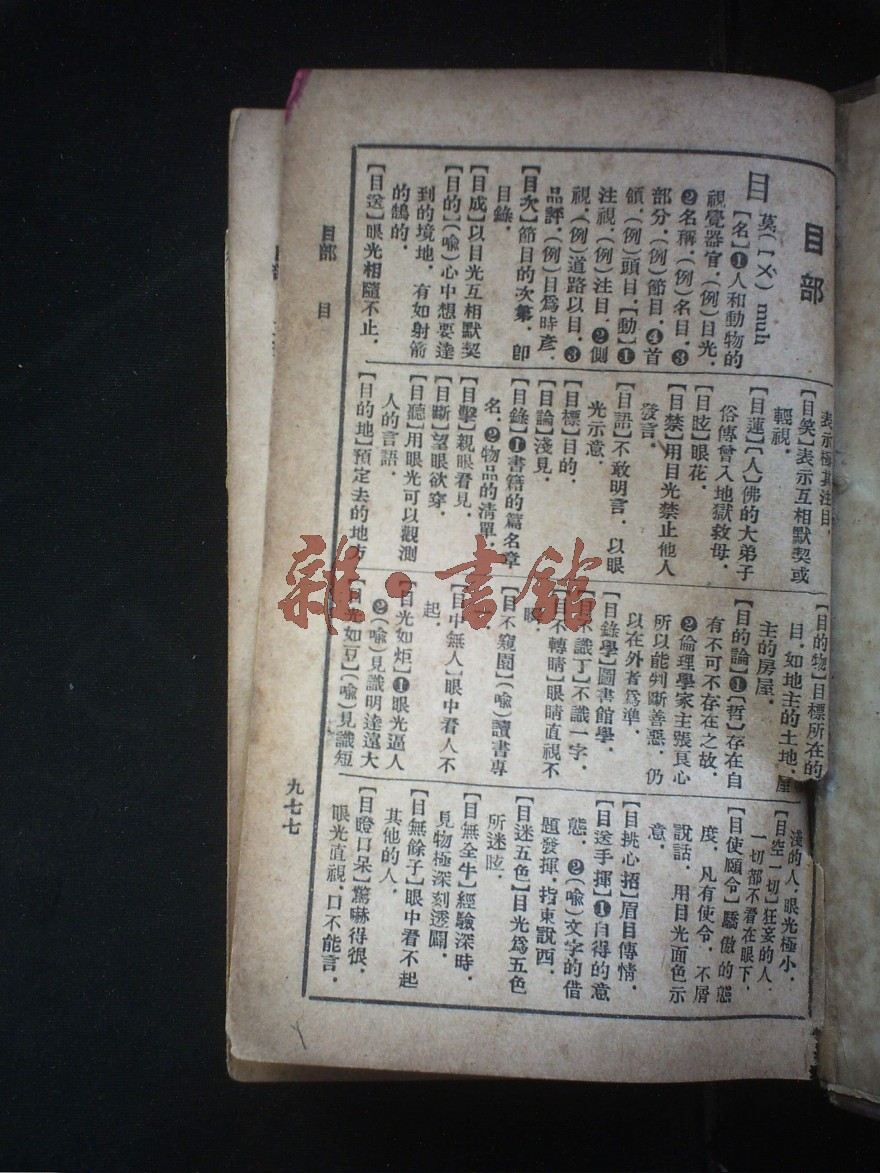 目部
目
莫(ㄧㄨˋ) muh
【名】❶人和動物的
視覺器官．(例)目光．
❷名稱．(例)名目．❸
部分．(例)節目．❹首
領．(例)頭目．【動】❶
注視．(例)注目．❷側
視．(例)道路以目．❸
品評．(例)目爲時彥．
【目次】節目的次第．卽
目錄．
【目成】以目光互相默契
【目的】(喩)心中想要達
到的境地．有如射箭
的鵠的．
【目送】眼光相隨不止，
表示極其注目．
【目笑】表示互相默契或
輕視．
【目蓮】【人】佛的大弟子
俗傳曾入地獄救母．
【目眩】眼花．
【目禁】用目光禁止他人
發言．
【目語】不敢明言．以眼
光示意．
【目標】目的．
【目論】淺見．
【目錄】❶書籍的篇名章
名．❷物品的清單．
【目擊】親眼看見．
【目斷】望眼欲穿．
【目聽】用眼光可以觀測
人的言語．
【目的地】預定去的地方
【目的物】目標所在的
目．如地主的土地．屋
主的房屋．
【目的論】❶【哲】存在自
有不可不存在之故．
❷倫理學家主張良心
所以能判斷善惡．仍
以在外者爲準．
【目錄學】圖書館學．
【目不識丁】不識一字．
【目不轉睛】眼睛直視不
瞬．
【目不窺園】(喩)讀書專
【目中無人】眼中看人不
起．
【目光如炬】❶眼光逼人
❷(喩)見識明達遠大
【目光如豆】(喩)見識短
淺的人．眼光極小．
【目空一切】狂妄的人．
一切都不看在眼下．
【目使頤令】驕傲的態
度．凡有使令．不屑
說話．用目光面色示
意．
【目挑心招】眉目傳情．
【目送手揮】❶自得的意
態．❷(喩)文字的借
題發揮．指東說西．
【目迷五色】目光爲五色
所迷眩．
【目無全牛】經驗深時．
見物極深刻透闢．
【目無餘子】眼中看不起
其他的人．
【目瞪口呆】驚嚇得很．
眼光直視．口不能言．
目部 目
九七七
雜·書館